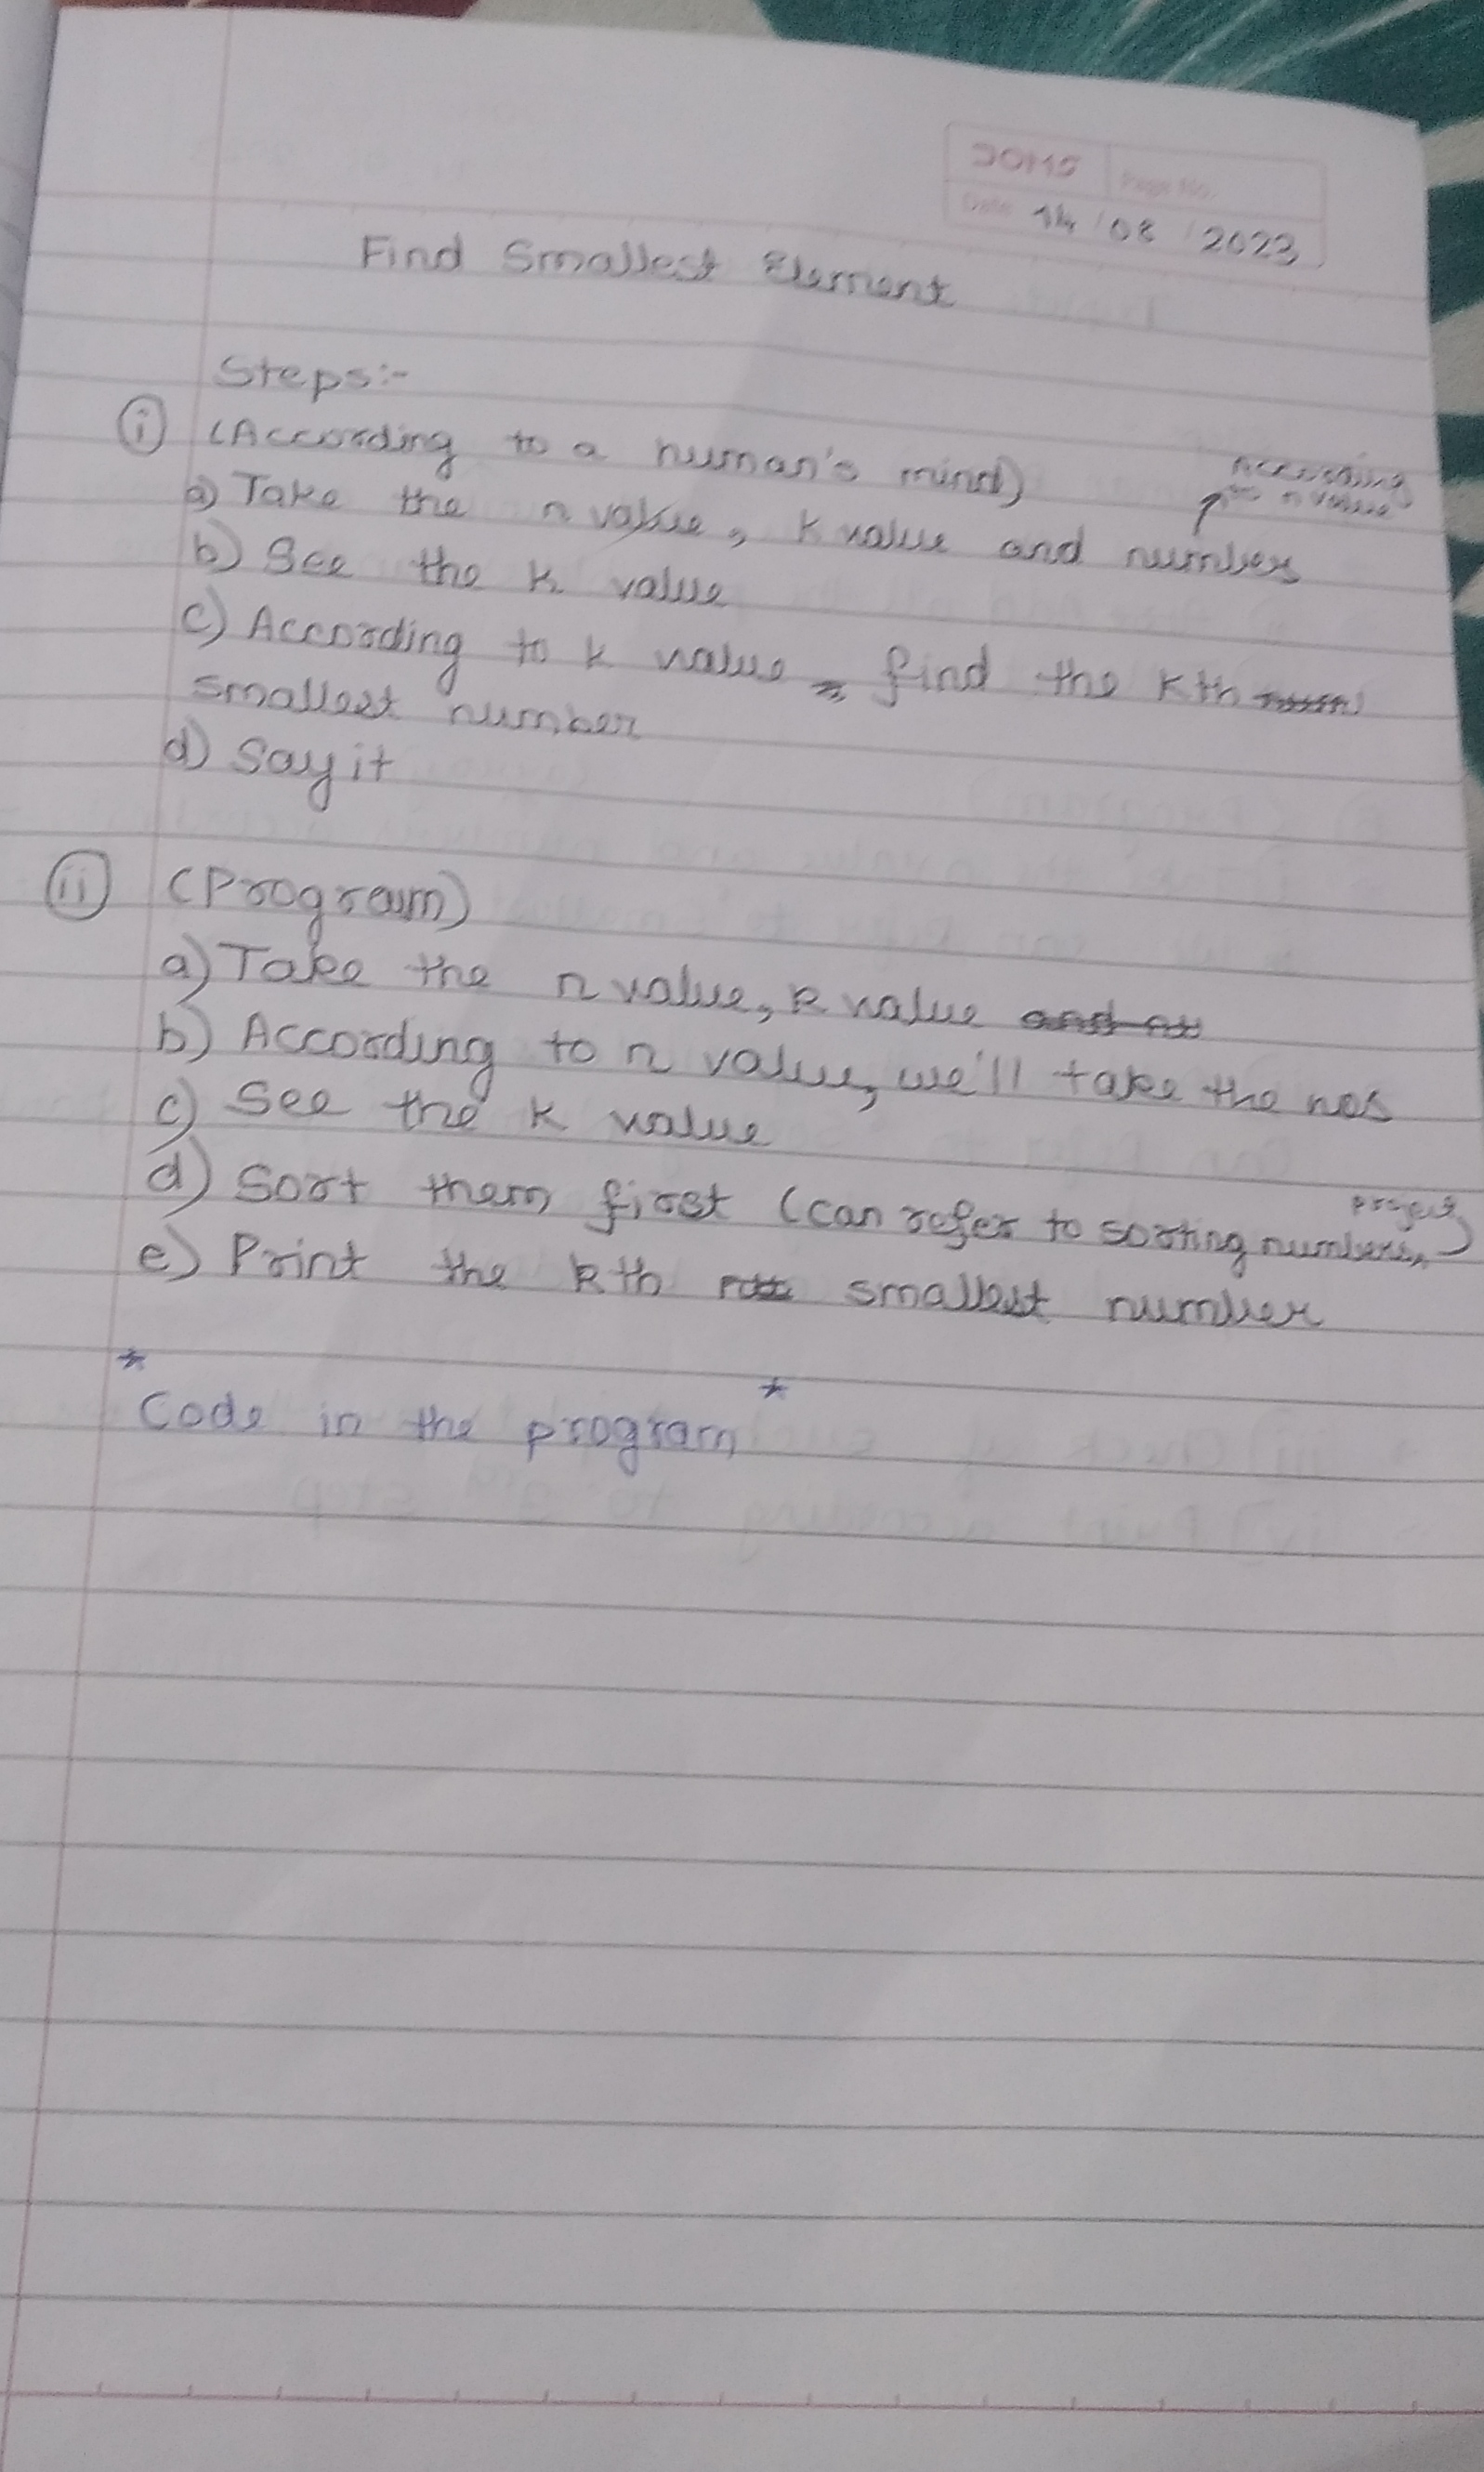 DOMS
Page No.
Date 14 / 08 / 2023
Find Smallest Element
Steps:-
(i) (According to a human's mind)
According
to n value
a) Take the n value, k value and numbers
b) See the k value
c) According to k value, find the kth
smallest number
d) Say it
(ii) (Program)
a) Take the n value, k value and
b) According to n value, we'll take the nos
c) See the k value
d) Sort them first (can refer to sorting numbers, project)
e) Print the kth smallest number
* Code in the program *